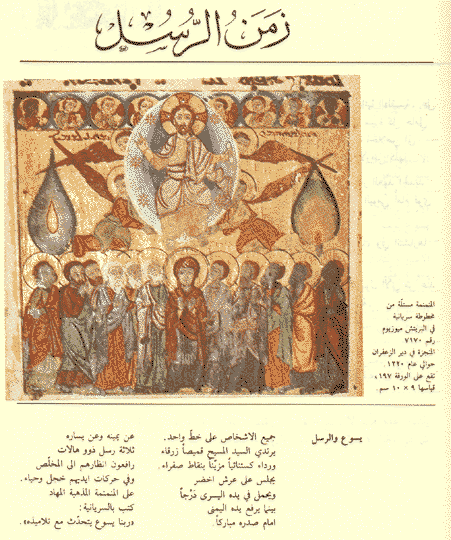 زَمَنُ الرُّسُل
المنمنمة مستلّة من
مخطوطة سريانية
في البريتش ميوزيوم
رقم ٧١٧٠
المنجزة في دير الزعفران
حوالي عام ١٢٢٠
تقع على الورقة ١٩٧،
قياسها ٩ × ١٠ سم.
يسوع والرسل
جميع الاشخاص على خطّ واحد.
يرتدي السيد المسيح قميصاً زرقاء
ورداء كستنائياً مزيّناً بنقاط صفراء.
يجلس على عرش اخضر
ويحمل في يده اليسرى دَرْجاً
بينما يرفع يده اليمنى
امام صدره مباركاً.
عن يمينه وعن يساره
ثلاثة رسل ذوو هالات
رافعون انظارهم الى المخلّص
وفي حركات ايديهم خجل وحياء.
على المنمنمة المذهبة المهاد
كتب بالسريانية:
«ربنا يسوع يتحدّث مع تلاميذه».